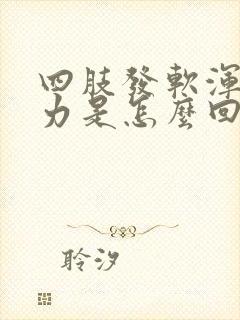 四肢發軟渾
力是怎麼回
聆汐